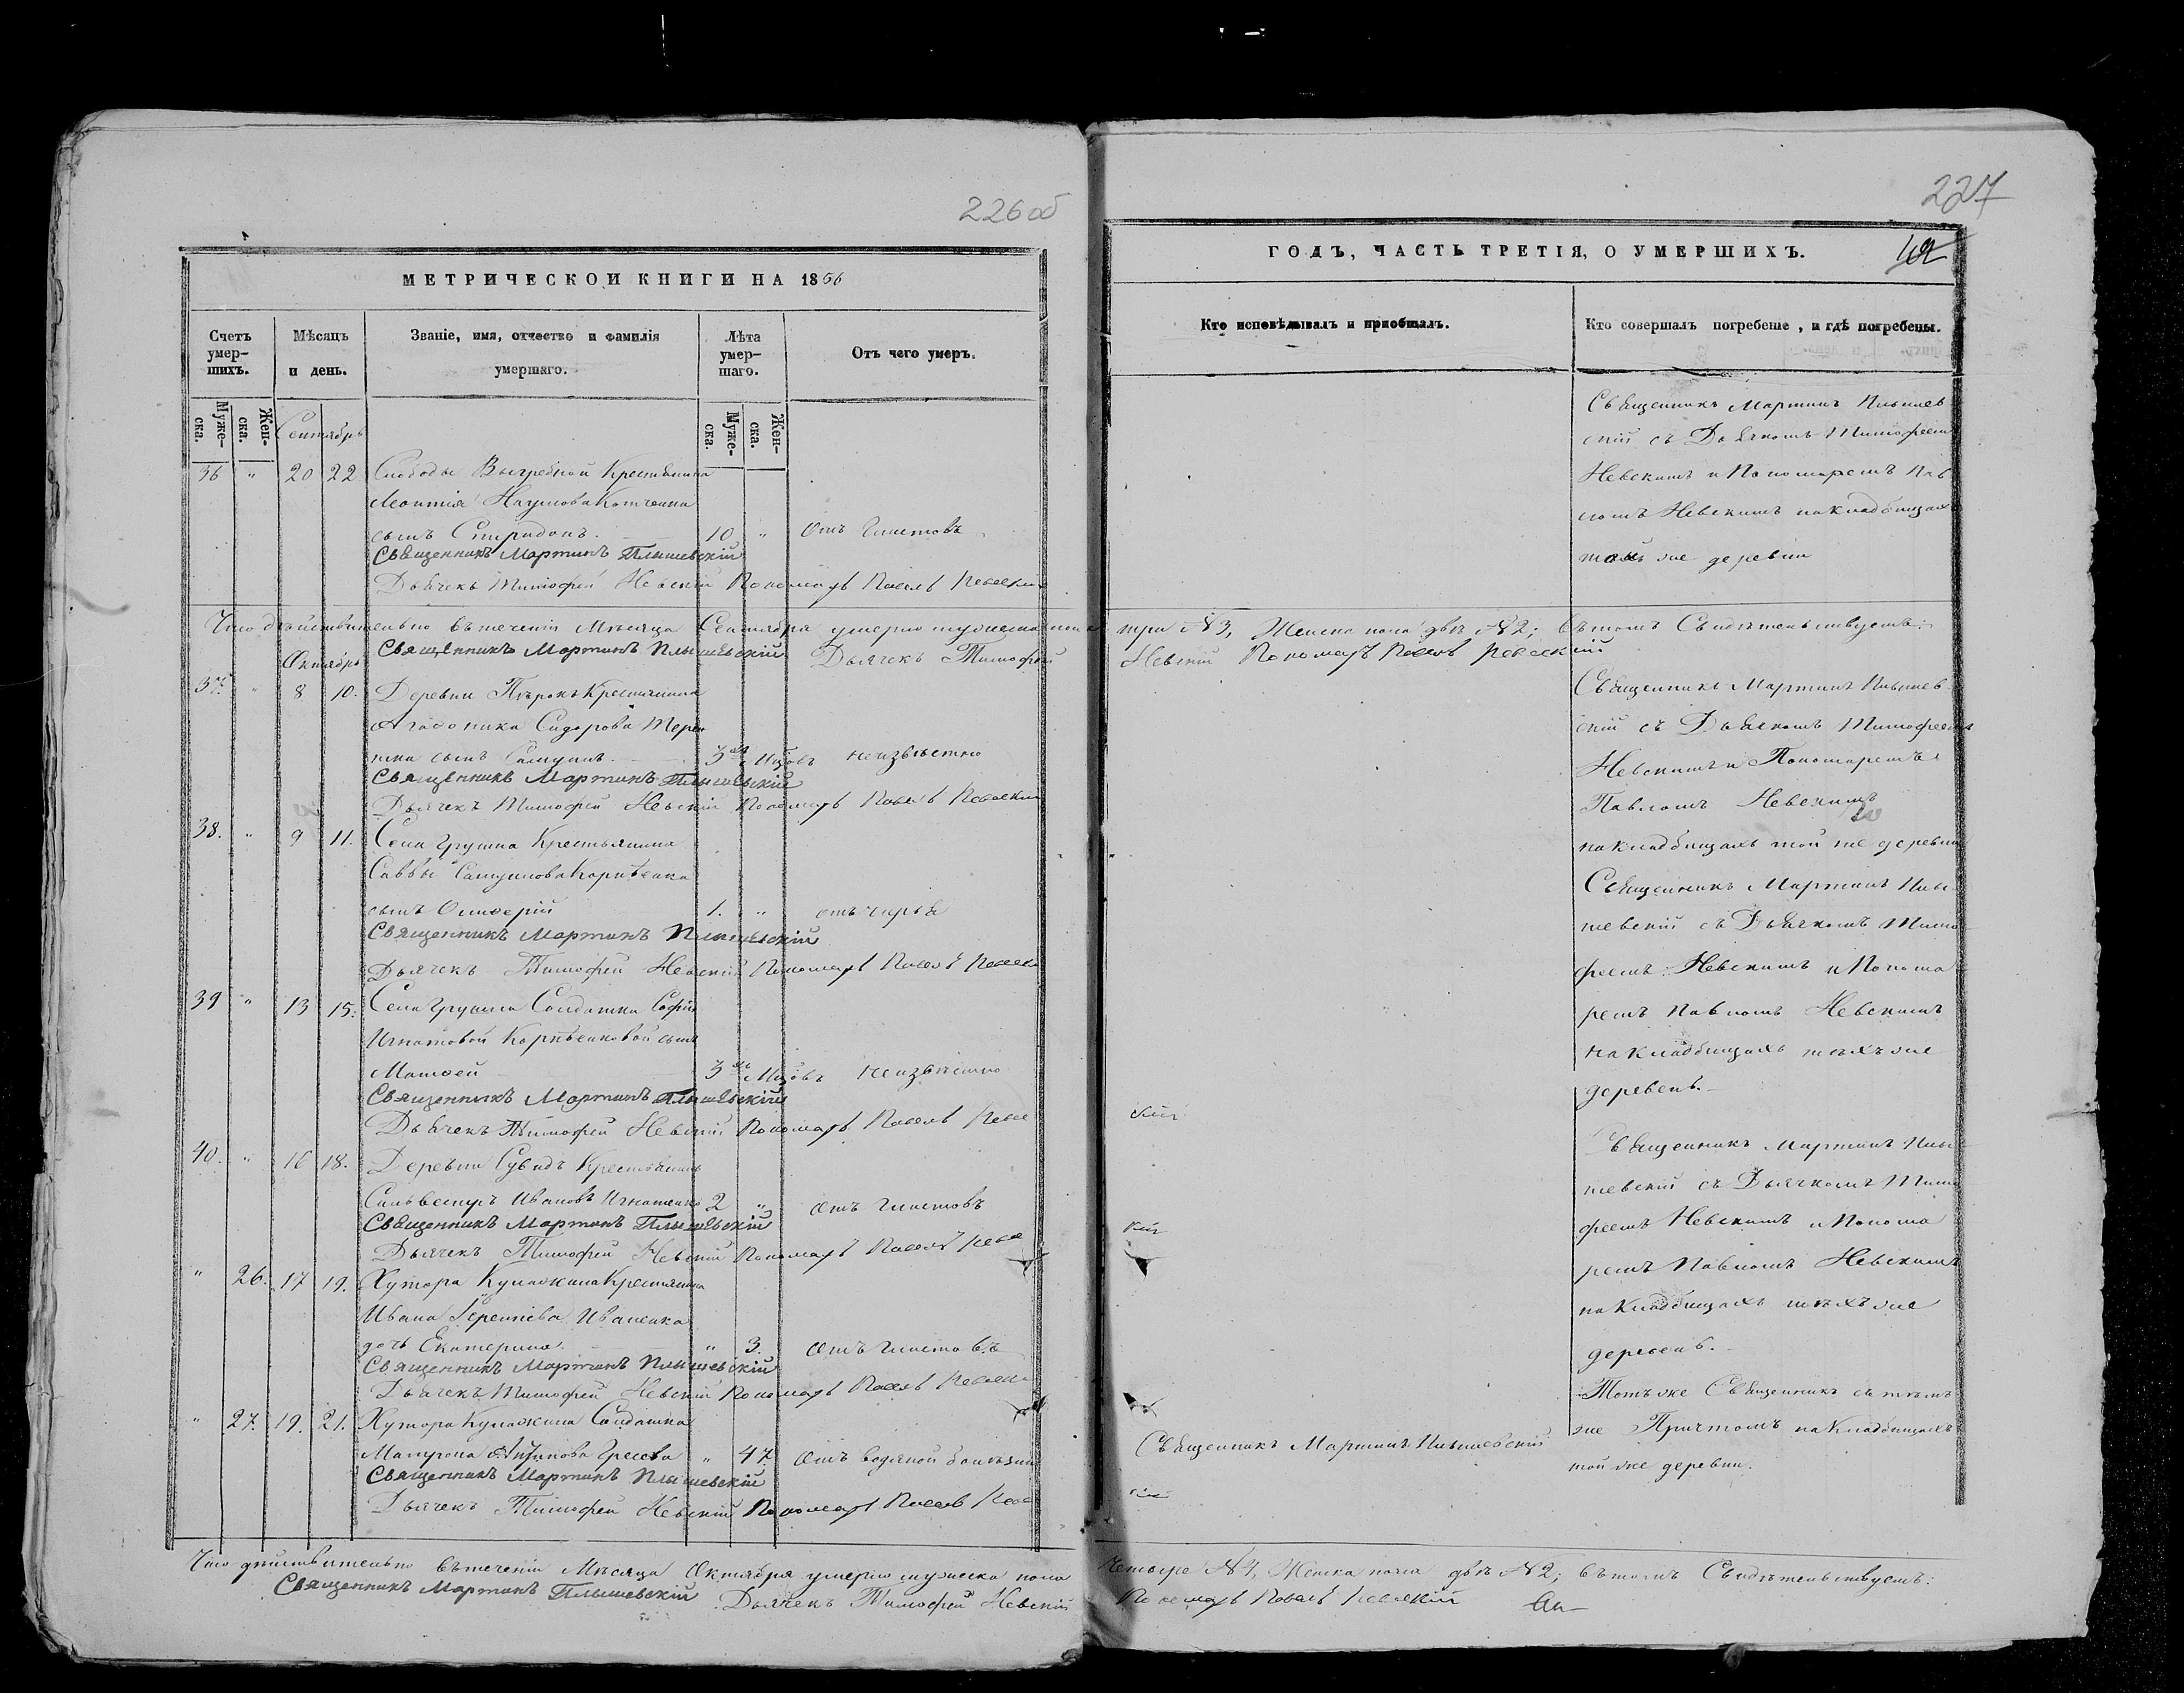 226 об
МЕТРИЧЕСКОЙ КНИГИ НА 1856
Счетъ умер-шихъ.
Мѣсяцъ и день.
Званіе, имя, отчество и фамилія умершаго.
Лѣта умер-шаго.
Отъ чего умеръ.
Муже-ска.
Жен-ска.
Сентябрь
Муже-ска.
Жен-ска.
36 " 20 22 Слободы Выгребной Крестьянина
Леонтія Наумова
сынъ Спиридонъ. 10 " Отъ Глистовъ
Священникъ Мартинъ Плышевскій
Дьячекъ Тимофей Невскій Пономарь Павелъ Невскій
Что дѣйствительно въ теченіи Мѣсяца Сентября умерло мужеска пола
Октябрь Священникъ Мартинъ Плышевскій Дьячекъ Тимофей
37. " 8 10. Деревни Крестьянина
Агафоника Сидорова
сынъ 3хъ Мѣсяцовъ неизвѣстно
Священникъ Мартинъ Плышевскій
Дьячекъ Тимофей Невскій Пономарь Павелъ Невскій
38. " 9 11. Села Грушна Крестьянина
Саввы Самуилова Карпѣенка
сынъ 1. " отъ
Священникъ Мартинъ Плышевскій
Дьячекъ Тимофей Невскій Пономарь Павелъ Невскій
39 " 13 15. Села Грушна Солдатки Софіи
Игнатовой Карпѣенковой сынъ
Матвей 3хъ Мѣсяцовъ неизвѣстно
Священникъ Мартинъ Плышевскій
Дьячекъ Тимофей Невскій Пономарь Павелъ Невс
40. " 16 18. Деревни Сувидъ Крестьянинъ
Сильвестръ Ивановъ Игнатенко 2 " Отъ Глистовъ
Священникъ Мартинъ Плышевскій
Дьячекъ Тимофей Невскій Пономарь Павелъ Невс
" 26. 17 19. Хутора Кулажина Крестьянина
Ивана Терентіева Иваненка
дочь Екатерина. " 3. Отъ Глистовъ
Священникъ Мартинъ Плышевскій
Дьячекъ Тимофей Невскій Пономарь Павелъ Невскі
" 27. 19. 21. Хутора Кулажина Солдатка
Матрона " 47. Отъ водяной болѣзни
Священникъ Мартинъ Плышевскій
Дьячекъ Тимофей Невскій Пономарь Павелъ Невс
Что дѣйствительно въ теченіи Мѣсяца Октября умерло мужеска пола
Священникъ Мартинъ Плышевскій Дьячекъ Тимофей Невскій
227
ГОДЪ, ЧАСТЬ ТРЕТІЯ, О УМЕРШИХЪ.
Кто исповѣдывалъ и пріобщалъ.
Кто совершалъ погребеніе, и гдѣ погребены.
Священникъ Мартинъ Плышев
скій съ Дьячкомъ Тимофеемъ
Невскимъ и Пономаремъ Пав
ломъ Невскимъ на кладбищахъ
той же деревни
три №3, Женска пола двѣ №2; въ томъ Свидѣтельствуемъ:
Невскій Пономарь Павелъ Невскій
Священникъ Мартинъ Плышев
скій съ Дьячкомъ Тимофеемъ
Невскимъ и Пономаремъ
Павломъ Невскимъ
на кладбищахъ той же деревни
Священникъ Мартинъ Плы
шевскій съ Дьячкомъ Тимо
феемъ Невскимъ и Понома
ремъ Павломъ Невскимъ
на кладбищахъ тѣхъ же
деревень.
скій
Священникъ Мартинъ Плы
шевскій съ Дьячкомъ Тимо
феемъ Невскимъ и Понома
кій
ремъ Павломъ Невскимъ
на кладбищахъ тѣхъ же
деревень.
Тотъ же Священникъ съ тѣмъ
же Причтомъ на кладбищахъ
той же деревни.
Священникъ Мартинъ Плышевскій
скій
четыре №4, Женска пола двѣ №2; въ томъ Свидѣтельствуемъ:
Пономарь Павелъ Невскій